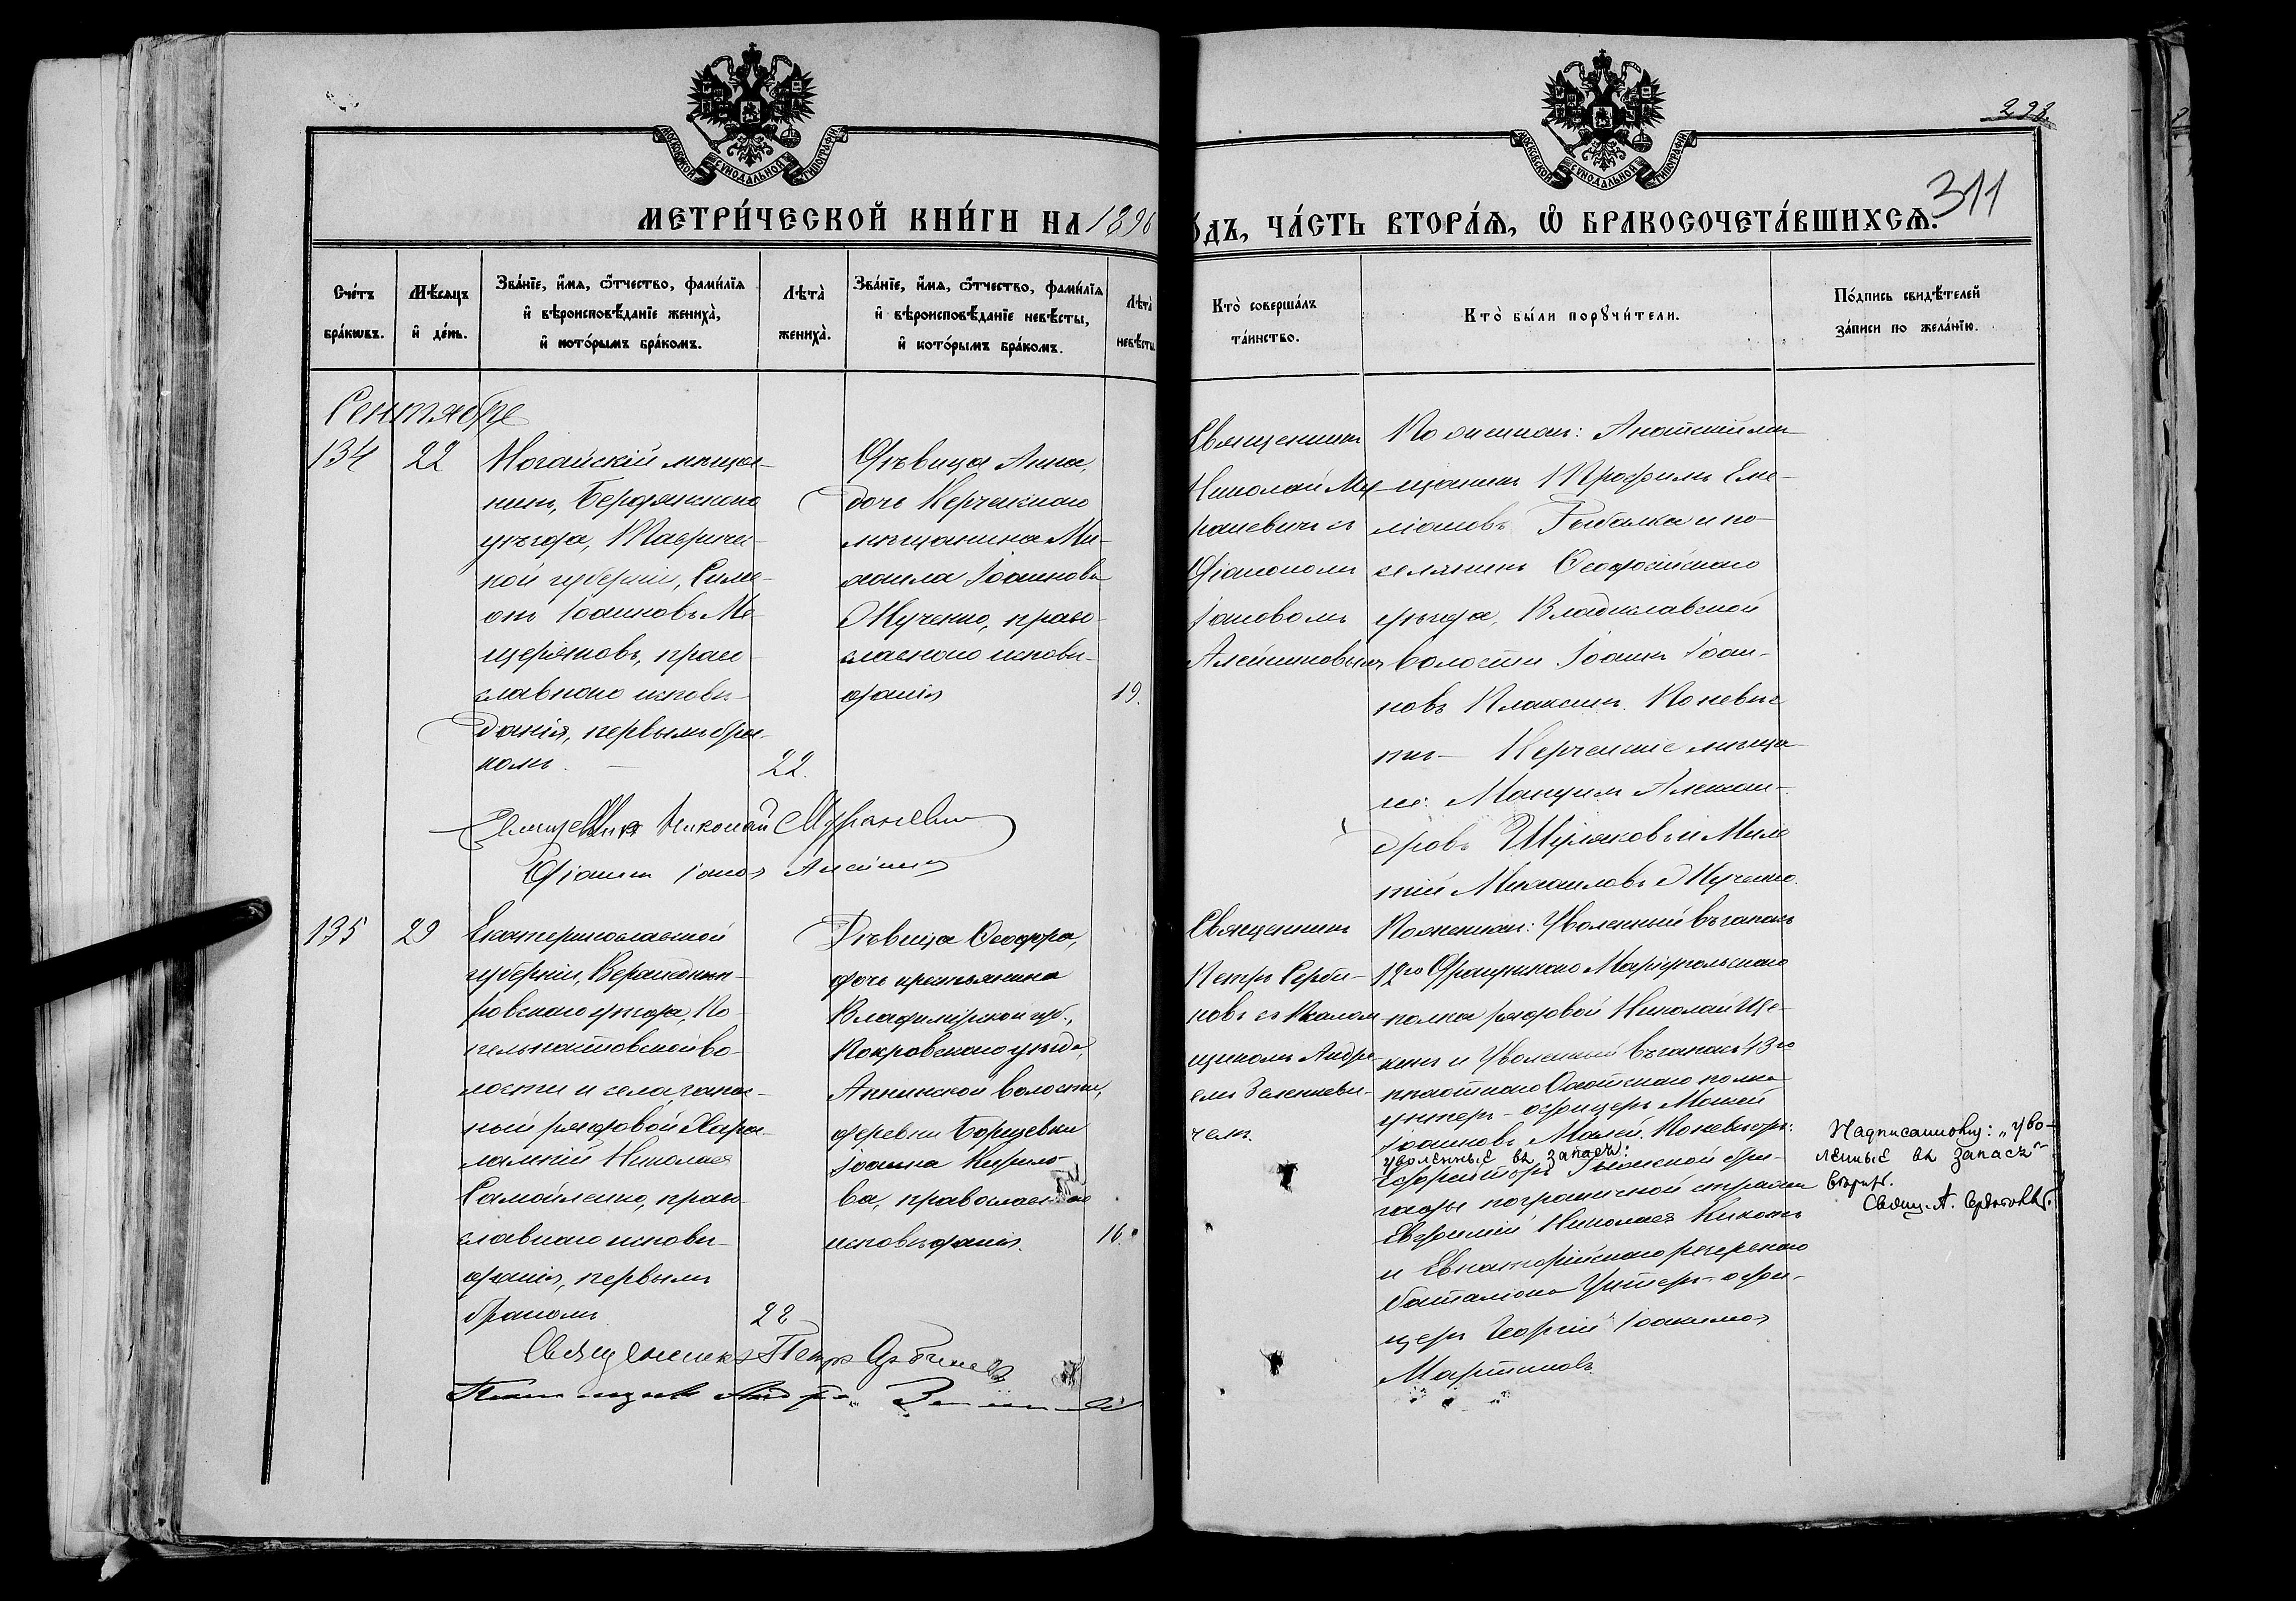 293.
311
МОСКОВСКОЙ СУНОДАЛЬНОЙ ТИПОГРАФІИ
МОСКОВСКОЙ СУНОДАЛЬНОЙ ТИПОГРАФІИ
МЕТРИ́ЧЕСКОЙ КНИ́ГИ НА 1896
ОДЪ, ЧА́СТЬ ВТОРА́Ѧ, Ѡ БРАКОСОЧЕТА́ВШИХСѦ.
Сче́тъ
бра́кѡвъ.
Мѣ́сѧцъ
и҆ де́нь.
Зва́нїе, и҆́мѧ, ѻ҆́тчество, фами́лїѧ
и҆ вѣроисповѣ́данїе жениха̀,
и҆ кото́рымъ бра́комъ.
Лѣта̀
жениха̀.
Зва́нїе, и҆́мѧ, ѻ҆́тчество, фами́лїѧ
и҆ вѣроисповѣ́данїе невѣ́сты,
и҆ кото́рымъ бра́комъ.
Лѣта̀
невѣ́сты
Кто̀ соверша́лъ
та́инство.
Кто̀ бы́ли порꙋчи́тели.
По́дпись свидѣ́телей
за́писи по жела́нїю.
Сентябре
134
22
Ногайскій мѣща-
нинъ, Бердянскаго
уѣзда, Тавричес-
кой губерніи, Симе-
онъ Іоанновъ Ме-
щеряковъ, право-
славнаго исповѣ-
данія, первымъ бра-
комъ.
22.
Дѣвица Анна,
дочь Керченскаго
мѣщанина Ми-
хаила Іоаннова
Мученко, право-
славнаго исповѣ-
данія
19.
Священникъ
Николай Му-
раневичъ съ
Діакономъ
Іаковомъ
Алейниковымъ
По женихѣ:
щанинъ Трофимъ Еме-
ліановъ Рыбалка и по-
селянинъ Ѳеодосійскаго
уѣзда, Владиславской
волости Іоаннъ Іоан-
новъ Плаксинъ. По невѣс-
тѣ — Керченскіе мѣща-
не: Максимъ Алексан-
дровъ Шуляковъ и
Михаиловъ Мученко.
Священникъ Николай Мураневичъ
Діаконъ Іаковъ
135
29
Екатеринославской
губерніи, Верхнеднѣп-
ровскаго уѣзда,
во-
лости и села, запас-
ный рядовой Хара-
лампій Николаевъ
Самойленко, право-
славнаго исповѣ-
данія, первымъ
бракомъ
22
Дѣвица Ѳеодора,
дочь крестьянина
Владимірской губ.,
Покровскаго уѣзда,
Аннинской волости,
деревни Борщевки
Іоанна Кирило-
ва, православнаго
исповѣданія.
16
Священникъ
Петръ Серби-
новъ съ Псалом-
щикомъ Андре-
емъ Зеленкеви-
чемъ.
По женихѣ: Уволенный въ запасъ
12го Драгунскаго Маріупольскаго
полка рядовой Николай Ще-
кинъ и Уволенный въ запасъ 43го
пѣхотнаго Охотскаго полка
унтеръ-офицеръ Моисей
Іоанновъ Малей. По невѣстѣ:
уволенные въ запасъ:
Ефрейторъ бри-
гады пограничной стражи
Евфимій Николаевъ
и Евпаторійскаго резервнаго
баталіона Унтеръ-офи-
церъ Георгій Іоакимовъ
Мартиновъ
Надписанному: „уво-
ленные въ запасъ“
вѣрить.
Свящ. А.
Священникъ Петръ Сербиновъ
Псаломщикъ Андрей